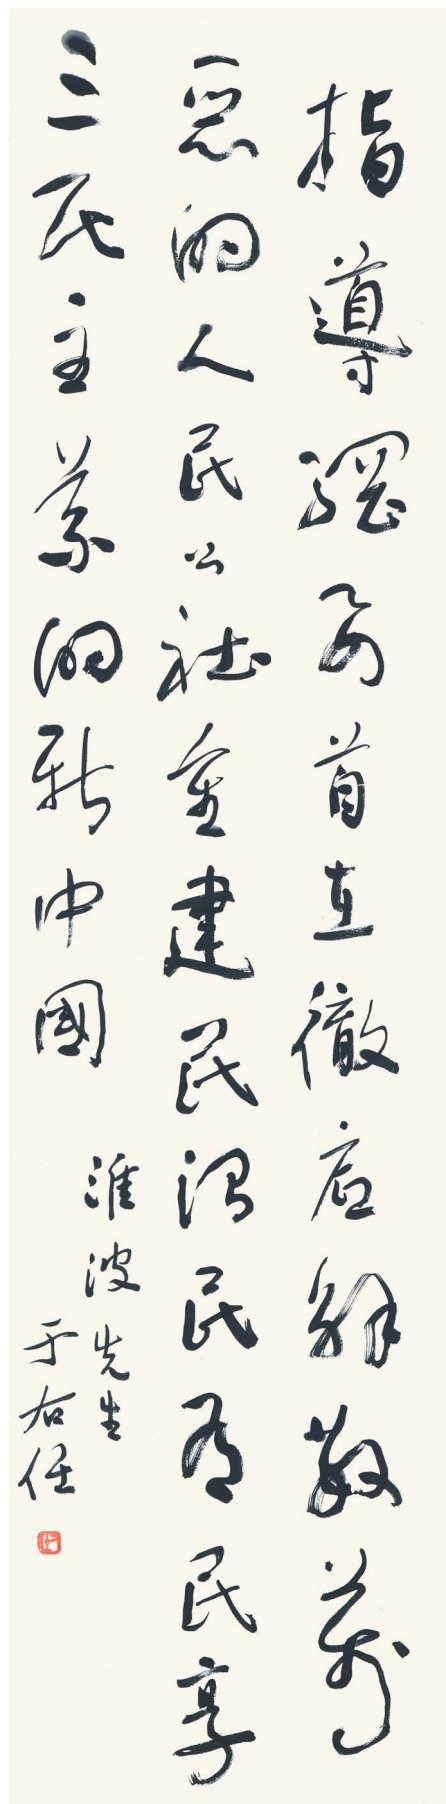 指導綱要首在徹底解散萬
惡的人民公社重建民治民有民享
三民主義的新中國
淮波先生
于右任